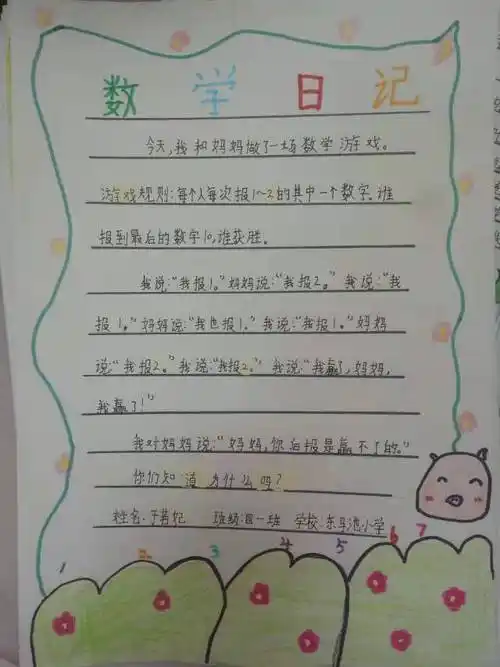 数学日记
今天,我和妈妈做了一场数学游戏。
游戏规则:每个人每次报1~2的其中一个数字.谁
报到最后的数字10,谁获胜。
我说:“我报1。”妈妈说:“我报2。”我说:“我
报1。”妈妈说:“我也报1。”我说:“我报1。”妈妈
说“我报2。”我说:“我报2。”我说:“我赢了,妈妈,
我赢了!”
我对妈妈说:“妈妈,你后报是赢不了的。”
你们知道为什么吗?
姓名:于茗妃 班级:四一班 学校:东马池小学
1 2 3 4 5 6 7